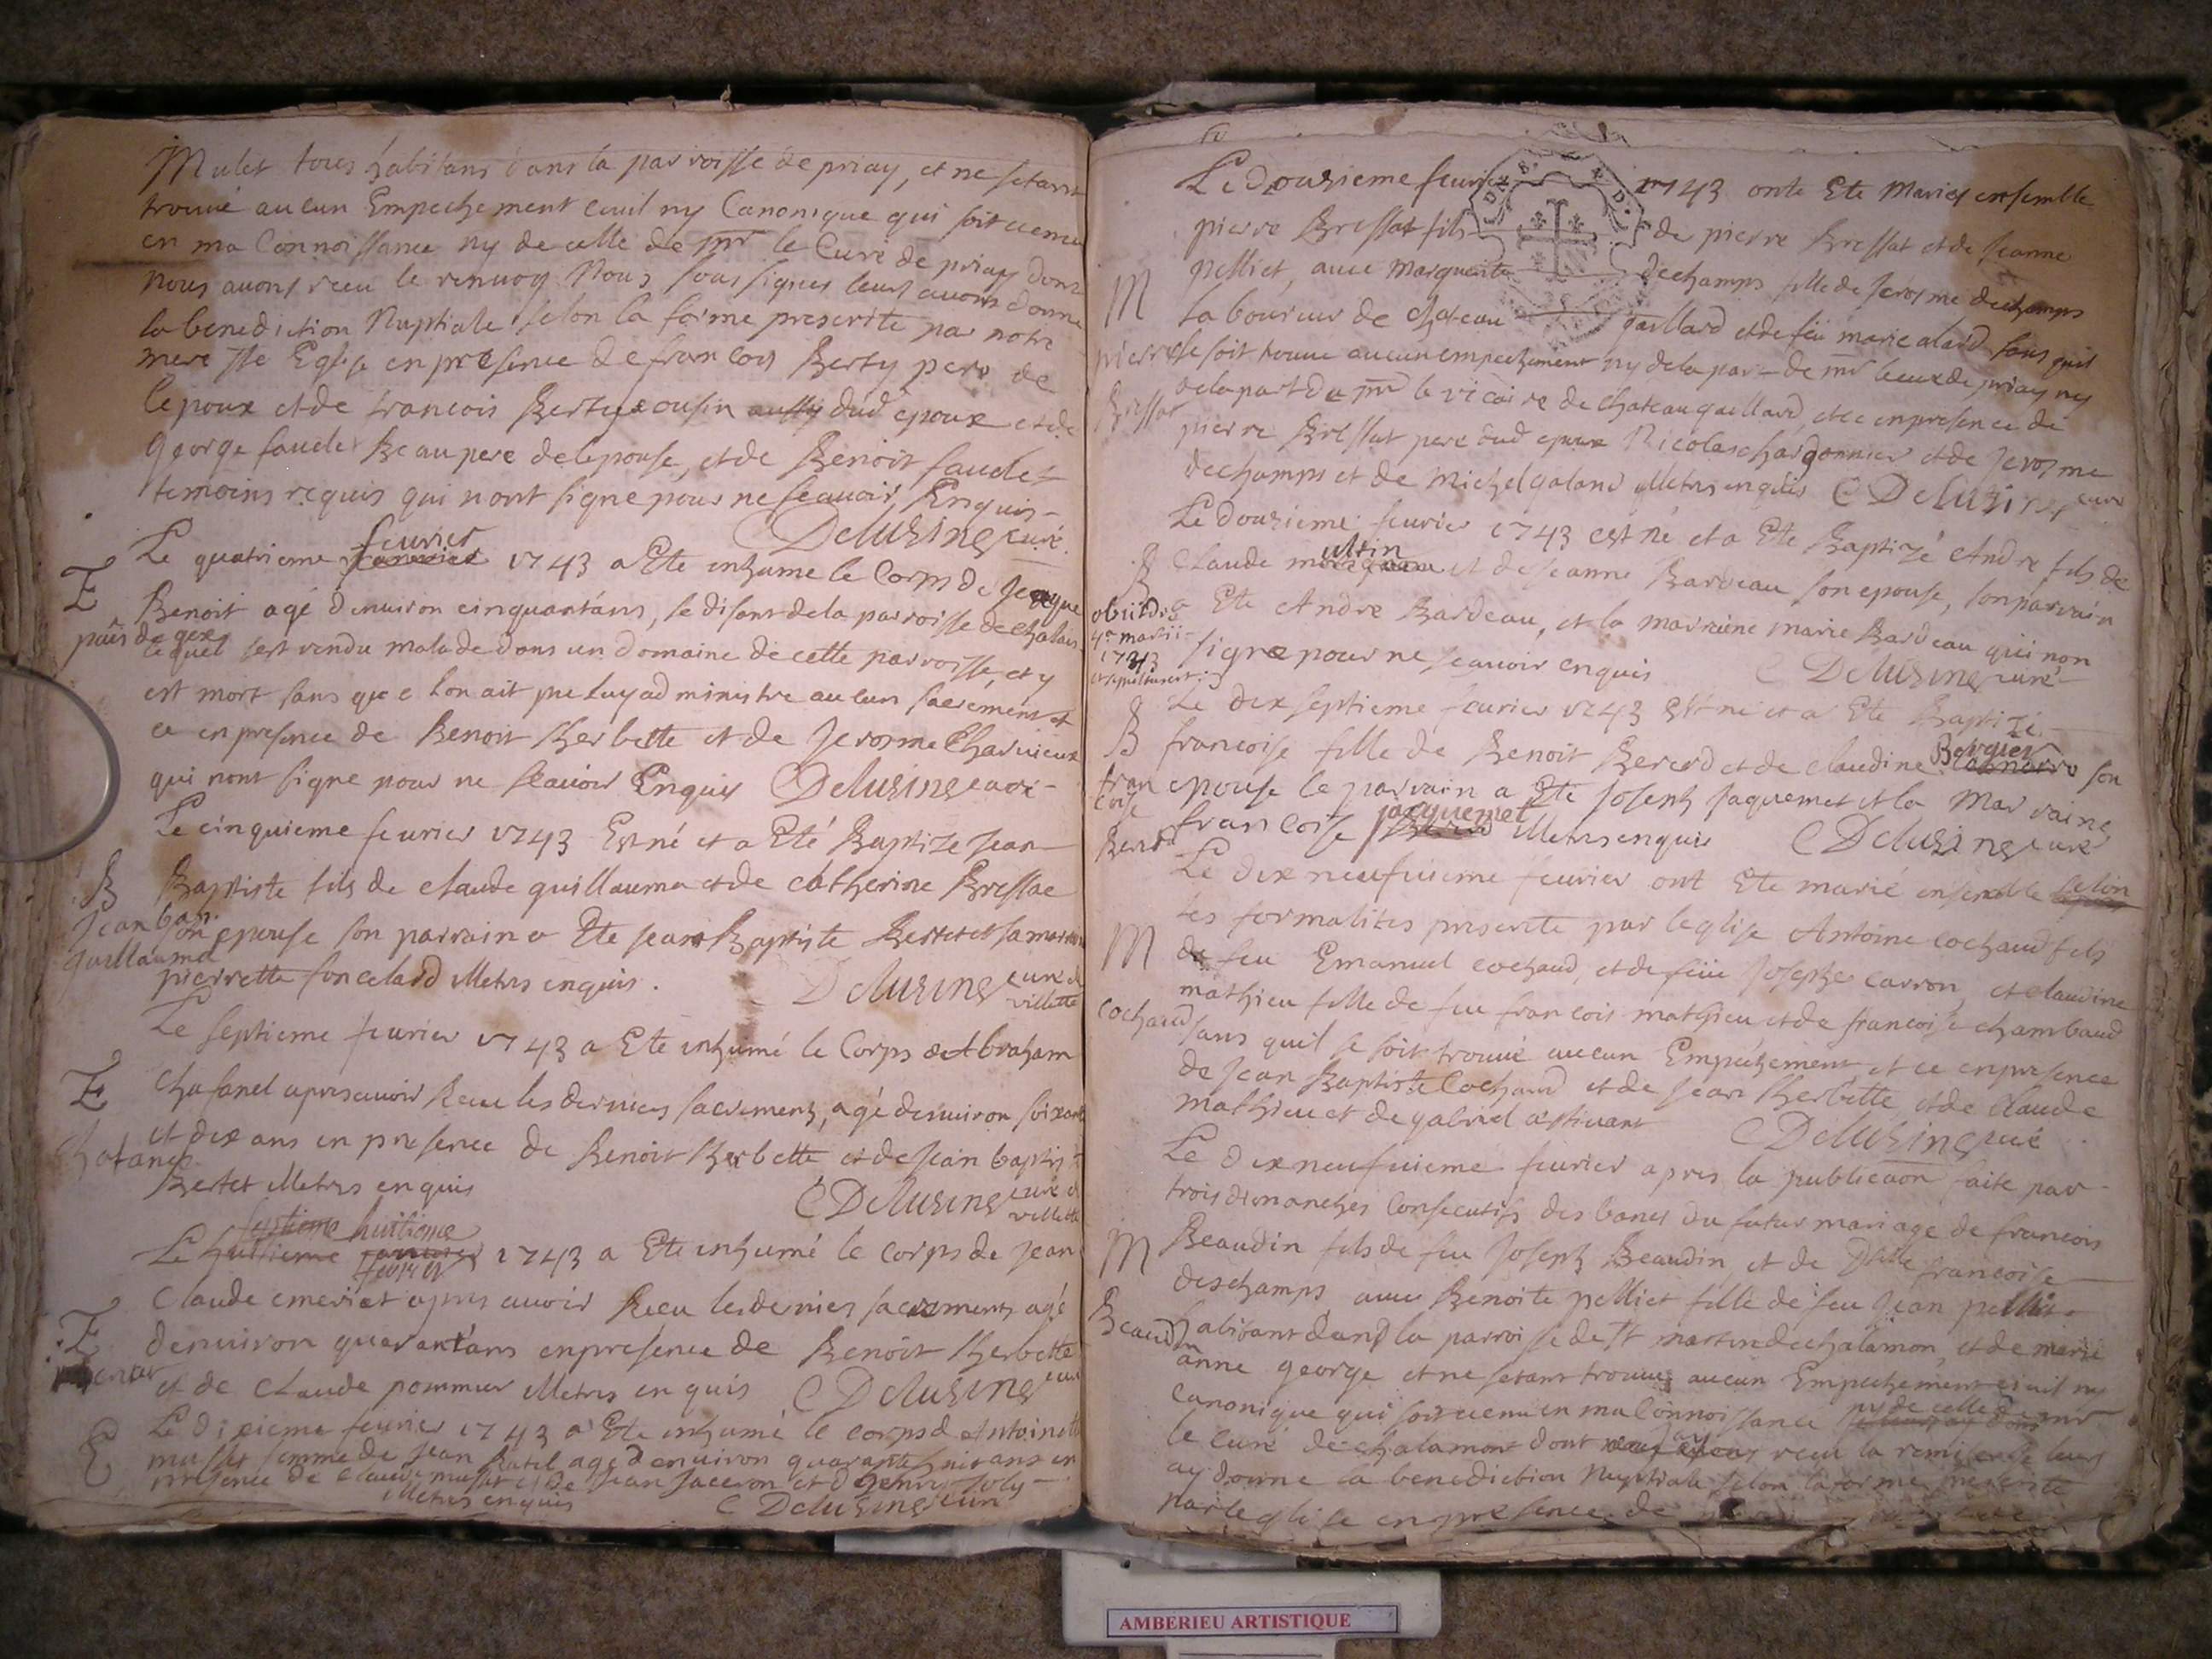 Mulet tous habitans dans la parroisse de priay, et ne setant
trouvé aucun Empechement civil ny Canonique qui soit venu
en ma Connoissance ny de celle de mr le Curé de priay dont
nous avons receu le renvoy Nous sous signes leurs avons donne
la benediction Nuptiale selon la forme prescrite par notre
mere ste Eglise en presence de francois Berty pere de
lepoux et de francois Berty cousin aussy dud epoux et de
George faudet Beaupere de lepouse, et de Benoit faudet
temoins requis qui nont signe pour ne scavoir, Enquis
Delusine curé
fevrier
Le quatrieme janvier 1743 a Ete inhume le Corps de Jacque
E Benoit agé d'environ cinquant'ans, se disant de la parroisse de
païs de gex
lequel sest rendu malade dans un Domaine de cette parroisse, et y
est mort sans que lon ait pu luy administre aucuns sacrements et
ce en presence de Benoit Herbette et de Jerosme Charvieux
qui nont signe pour ne scavoir Enquis Delusine curé
Le cinquieme fevrier 1743 Est né et a Eté Baptize Jean
B Baptiste fils de claude guillaume et de catherine Bressat
Jean bap.
guillaume
son epouse son parrain a Ete Jean Baptiste Bertet et sa marraine
pierrette foncelard illetrés enquis. Delusine curé de
villette
Le septieme fevrier 1743 a Ete inhumé le Corps de Abraham
E Chafanel apres avoir Receu les derniers sacrements, agé denviron soixante
et dix ans en presence de Benoit Herbette et de Jean baptis
chafanel
Bertet illetrés enquis Delusine curé de
villette
septieme huitieme
Le huitieme janvier 1743 a Ete inhumé le corps de Jean
fevrier
Claude emeriat apres avoir Receu les dernies sacrements agé
E denviron quarant'ans en presence de Benoit Herbette
et de Claude pommier illetrés enquis Delusine curé
Le dixieme fevrier 1743 a Ete inhumé le corps d Antoinette
E musset femme de Jean Ratel agé denviron quarante huit ans en
presence de claude musset et de Jean Jaceron et d henry Joly
illetrés enquis Delusine curé
Le Douzieme fevrier 1743 onte Ete Maries ensemble
pierre Bressat fils de pierre Bressat et de Jeanne
M pelliet, avec Marguerite dechamps fille de Jerosme dechamps
Laboureur de chateau gaillard et de feu marie alard sans quil
pierre
Bressat
se soit trouve aucun empechement ny de la part de mr le cure de priay ny
de la part de mr le vicaire de chateau gaillard, et ce en presence de
pierre Bressat pere dud epoux Nicolas chardonnier et de Jerosme
dechamps et de Michel galand illetrés enquis Delusine curé
Le douzieme fevrier 1743 est né et a Ete Baptizé Andre fils de
B Claude et de Jeanne Bardeau son epouse, son parrain
obiit die
4a martii
1743
et sepultus est
a Ete Andre Bardeau, et la marraine marie Bardeau qui non
signe pour ne scavoir enquis Delusine curé
Le dix septieme fevrier 1743 Est né et a Ete Baptizé
B francoise fille de Benoit Bererd et de claudine Berguier son
francoise
Berard
epouse le parrain a Ete Joseph Jaquemet et la Marraine
francoise jacquemet illetrés enquis Delusine curé
Le dix neufvieme fevrier ont Ete marié ensemble selon
les formalités prescrite par leglise Antoine cochaud fils
M de feu Emanuel cochaud, et de feüe Josephe carron, et claudine
mathieu fille de feu francois mathieu et de francoise chambaud
cochaud
sans quil se soit trouvé aucun Empéchement et ce en presence
de Jean Baptiste Cochaud et de Jean Herbette et de Claude
mathieu et de gabriel Delusine curé
Le dix neufvieme fevrier apres la publication faite par
trois dimanches Consecutifs des bancs du futur mariage de francois
M Beaudin fils de feu Joseph Beaudin, et de Dlle francoise
deschamps avec Benoite pelliet fille de feu Jean pelliet
Beaudin
habitant dans la parroisse de st martin de chalamon, et de marie
anne george et ne setant trouvé aucun Empechement civil ny
canonique qui soit venu en ma Connoissance ny de celle de mr
le curé de chalamont dont jay receu la remise je leurs
ay donné la benediction Nuptiale selon la forme prescrite
par leglise en presence de
AMBERIEU ARTISTIQUE